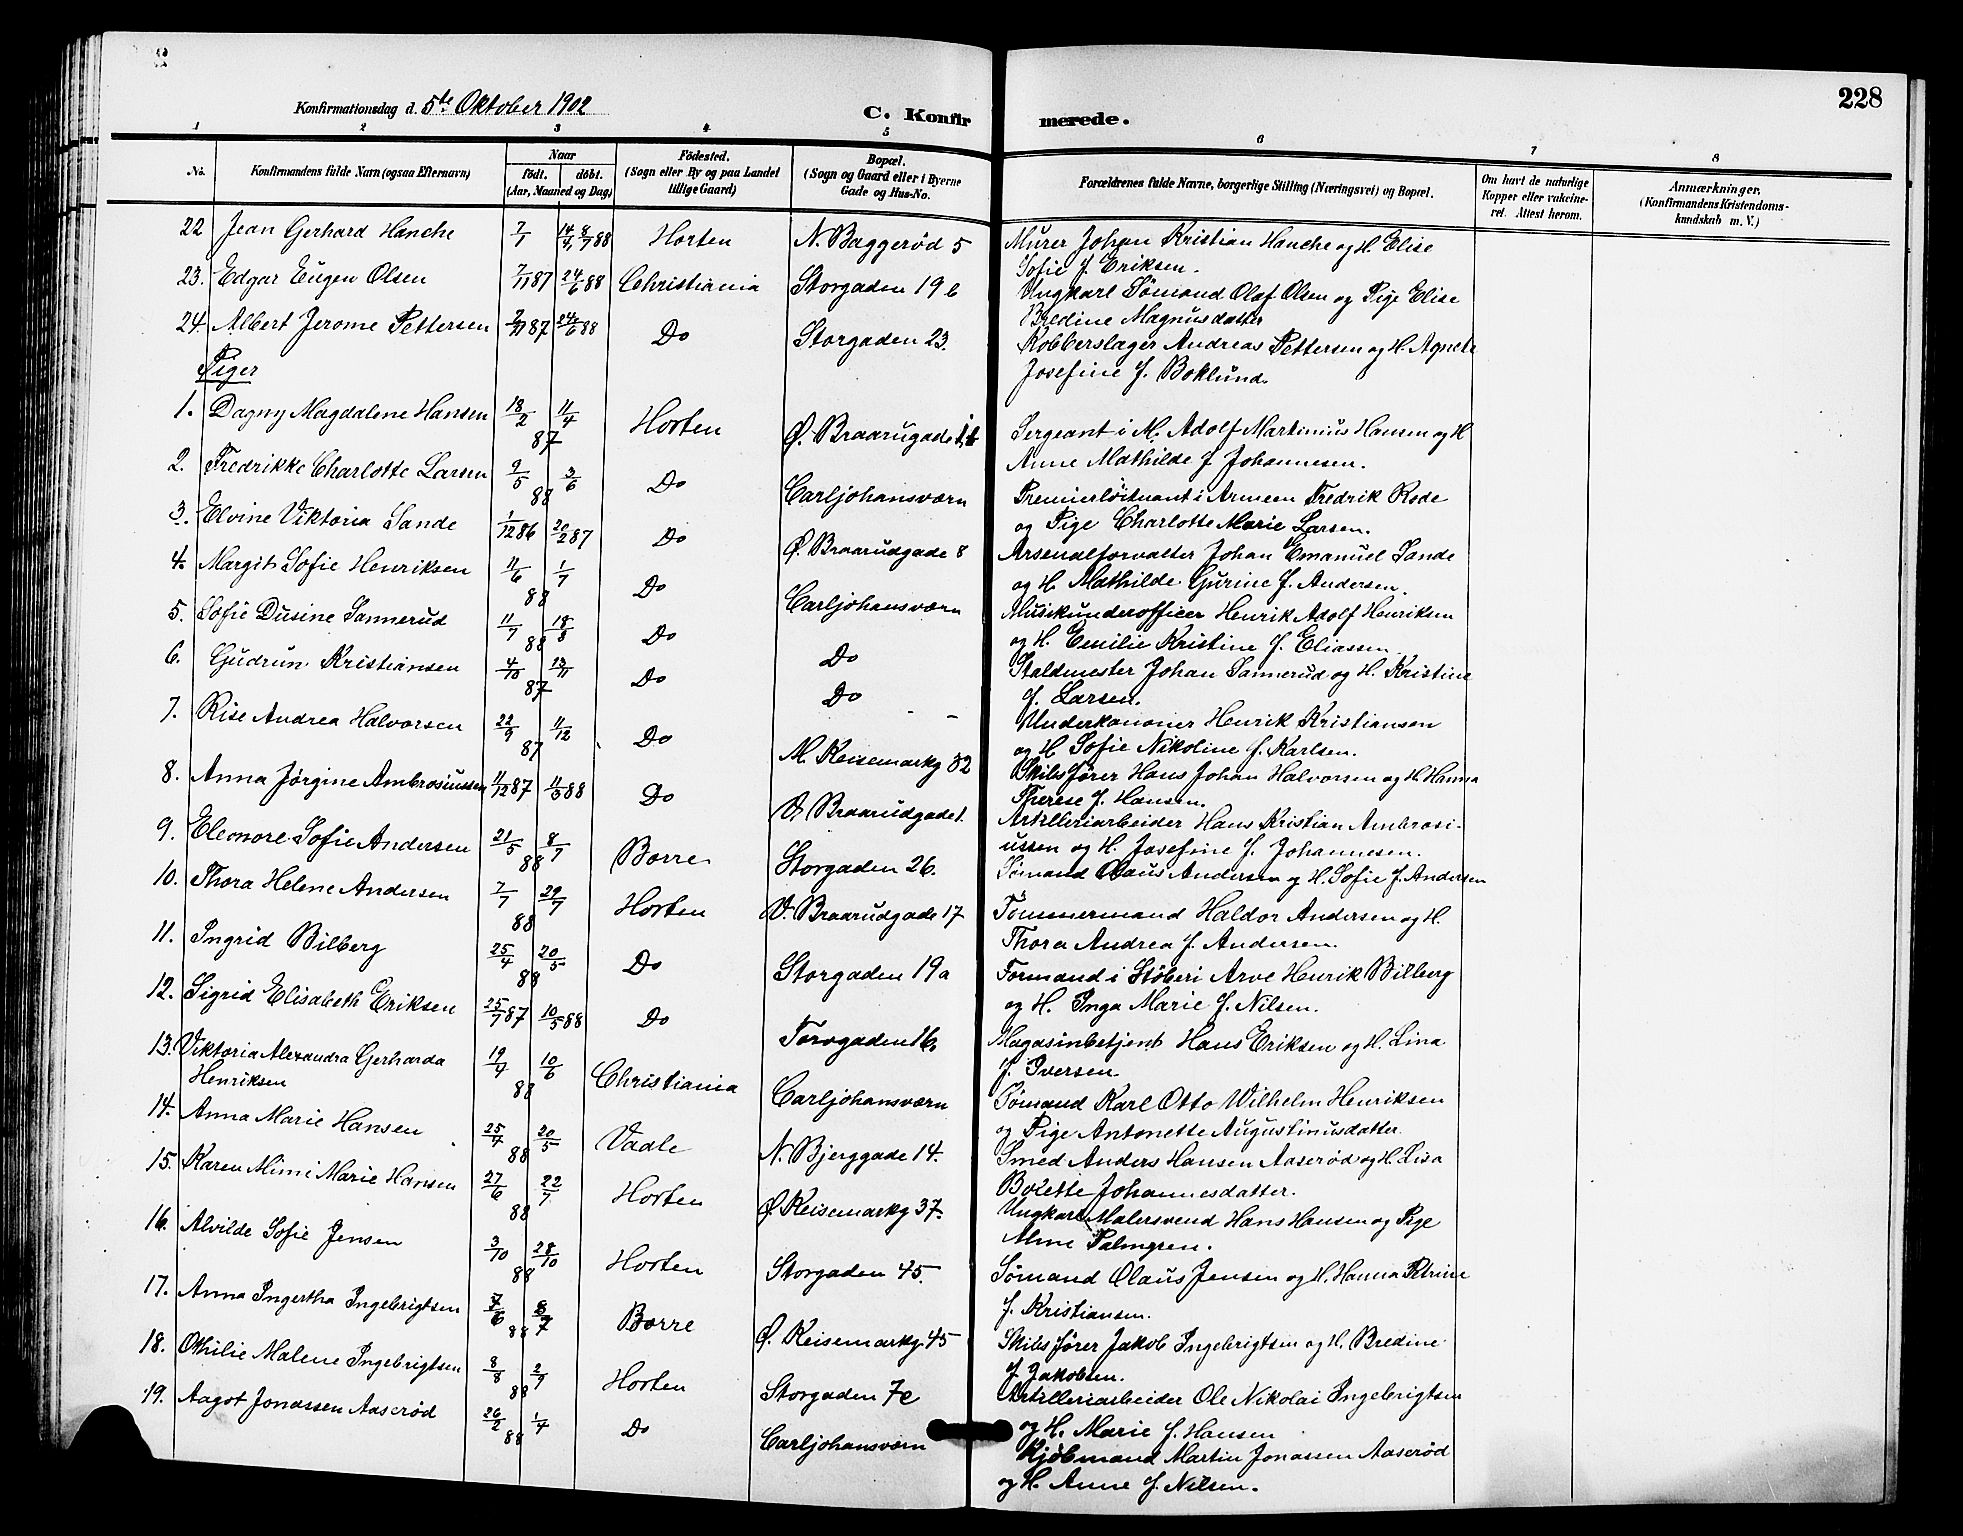 228
Konfirmationsdag d. 5te Oktober 1902
C. Konfirmerede.
1 2 3 4 5 6 7 8
No.
Konfirmandens fulde Navn (ogsaa Efternavn)
Naar
født. døbt.
(Aar, Maaned og Dag)
Fødested.
(Sogn eller By og paa Landet
tillige Gaard)
Bopæl.
(Sogn og Gaard eller i Byerne
Gade og Hus-No.
Forældrenes fulde Navne, borgerlige Stilling (Næringsvei) og Bopæl.
Om havt de naturlige
Kopper eller vakcine-
ret. Attest herom.
Anmærkninger.
(Konfirmandens Kristendoms-
kundskab m. V.)
22 Jean Gerhard Hanche 7/1 8/7 88 Horten N. Baggerød 5 Murer Johan Kristian Hanche og H. Elise
Sofie f. Eriksen.
23. Edgar Eugen Olsen 7/11 87 24/6 88 Christiania Storgaden 19 b Ungkarl Sømand Olaf Olsen og Pige Elise
Bredine Magnusdatter
24. Albert Jerome Pettersen 2/11 87 24/6 88 Do Storgaden 23. Kobberslager Andreas Pettersen og H. Agnete
Josefine f. Boklund.
Piger
1. Dagny Magdalene Hansen 18/2 11/4 87 Horten Ø. Braarugade Sergeant i M. Adolf Martinius Hansen og H
Anne Mathilde f Johannesen.
2. Fredrikke Charlotte Larsen 9/5 3/6 88 Do Carljohansværn Premierløitnant i Armeen Fredrik Rode
og Pige Charlotte Marie Larsen.
3. Elvine Viktoria Sande 1/12 86 20/2 87 Do Ø. Braarudgade 8 Arsenalforvalter Johan Emanuel Sande
og H. Mathilde Gurine f. Andersen.
4. Margit Sofie Henriksen 11/6 1/7 88 Do Carljohansværn Musikunderofficer Henrik Adolf Henriksen
og H. Emilie Kristine f. Eliassen
5. Sofie Dusine Sannerud 11/7 18/8 88 Do Do Staldmester Johan Sannerud og H. Kristine
f. Larsen.
6. Gudrun Kristiansen 4/10 13/11 87 Do Do Underkanoner Henrik Kristiansen
og H. Sofie Nikoline f. Karlsen.
7. Rise Andrea Halvorsen 22/9 11/12 87 Do M. Reisemarkg 32 Skibsfører Hans Johan Halvorsen og H. Hanna
Therese f. Hansen.
8. Anna Jørgine Ambrosiussen 11/12 87 11/3 88 Do V. Braarudgade 1. Artilleriarbeider Hans Kristian Ambrosi-
ussen og H. Josefine f. Johannesen.
9. Eleonore Sofie Andersen 21/5 8/7 88 Borre Storgaden 26. Sømand Olaus Andersen og H. Sofie f. Andersen
10. Thora Helene Andersen 7/7 29/7 88 Horten V. Braarudgade 17 Tømmermand Haldor Andersen og H.
Thora Andrea f. Andersen.
11. Ingrid Bilberg 25/4 20/5 88 Do Storgaden 19a Formand i Støberi Arve Henrik Bilberg
og H. Inga Marie f. Nilsen.
12. Sigrid Elisabeth Eriksen 25/7 87 10/5 88 Do Torvgaden 16. Magasinbetjent Hans Eriksen og H. Lina
f. Iversen.
13. Viktoria Alexandra Gerharda
Henriksen 19/4 10/6 88 Christiania Carljohansværn Sømand Karl Otto Wilhelm Henriksen
og Pige Antonette Augustinusdatter
14. Anna Marie Hansen 25/4 20/5 88 Vaale N. Bjerggade 14. Smed Anders Hansen Aaserød og H. Lisa
Bolette Johannesdatter.
15. Karen Mimi Marie Hansen 27/6 22/7 88 Horten Ø. Reisemarkg 37. Ungkarl Malersvend Hans Hansen og Pige
Alme Palmgren.
16. Alvilde Sofie Jensen 3/10 28/10 88 Horten Storgaden 45. Sømand Olaus Jensen og H. Hanna Petrine
f. Kristiansen.
17. Anna Ingertha Ingebrigtsen 7/6 8/7 88 Borre Ø. Reisemarkg 45 Skibsfører Jakob Ingebrigtsen og H. Bredine
f. Jakobsen.
18. Othilie Malene Ingebrigtsen 8/8 2/9 88 Horten Storgaden 7c Artilleriarbeider Ole Nikolai Ingebrigtsen
og H. Marie f. Hansen
19. Aagot Jonassen Aaserød 26/2 1/4 88 Do Carljohansværn Kjøbmand Martin Jonassen Aaserød
og H. Anne f. Nilsen.